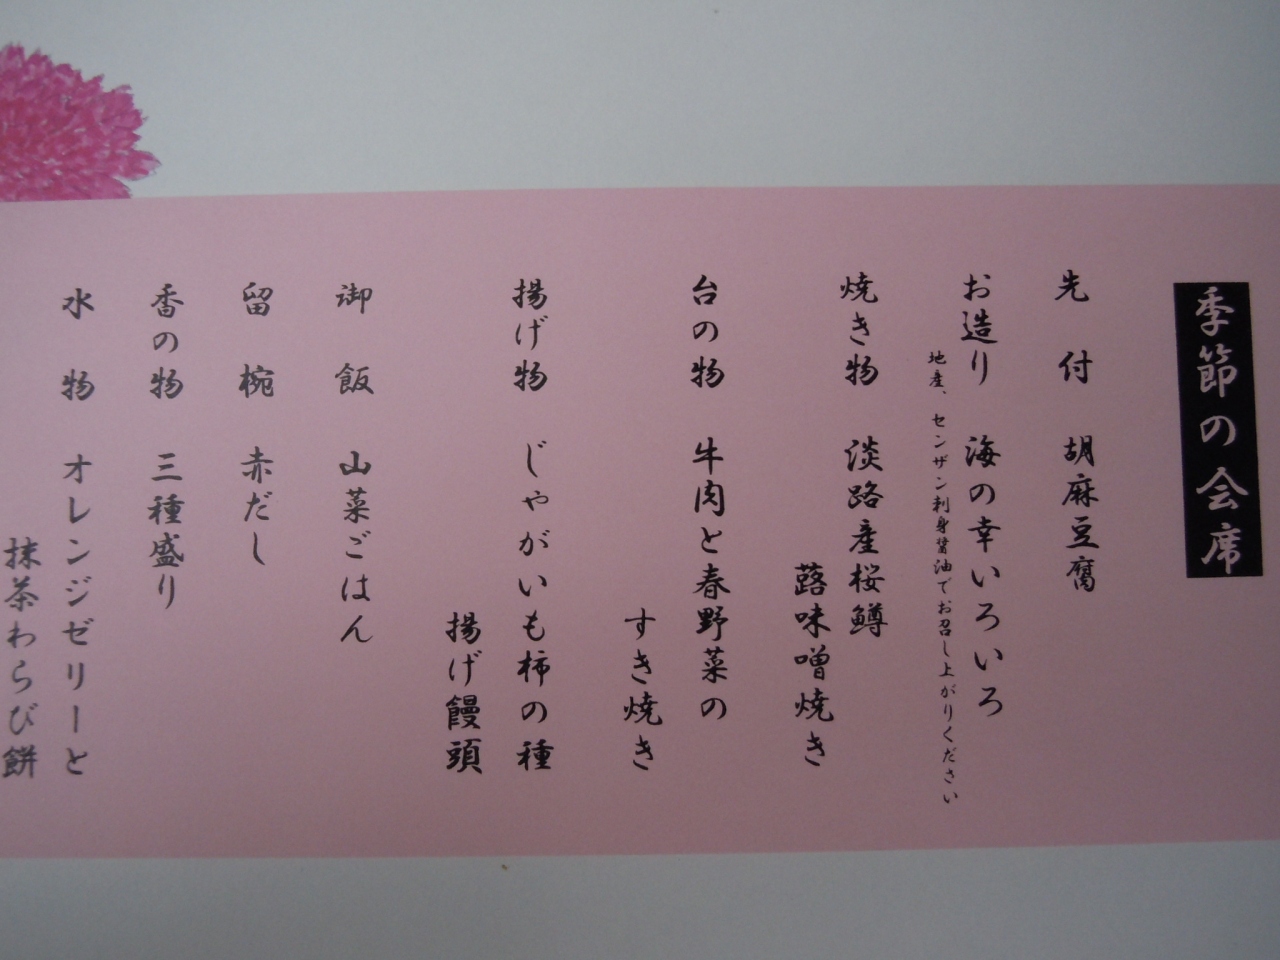 季節の会席
先付 胡麻豆腐
お造り 海の幸いろいろ
地産、センザン刺身醤油でお召し上がりください
焼き物 淡路産桜鱒
蕗味噌焼き
台の物 牛肉と春野菜の
すき焼き
揚げ物 じゃがいも柿の種
揚げ饅頭
御飯 山菜ごはん
留椀 赤だし
香の物 三種盛り
水物 オレンジゼリーと
抹茶わらび餅